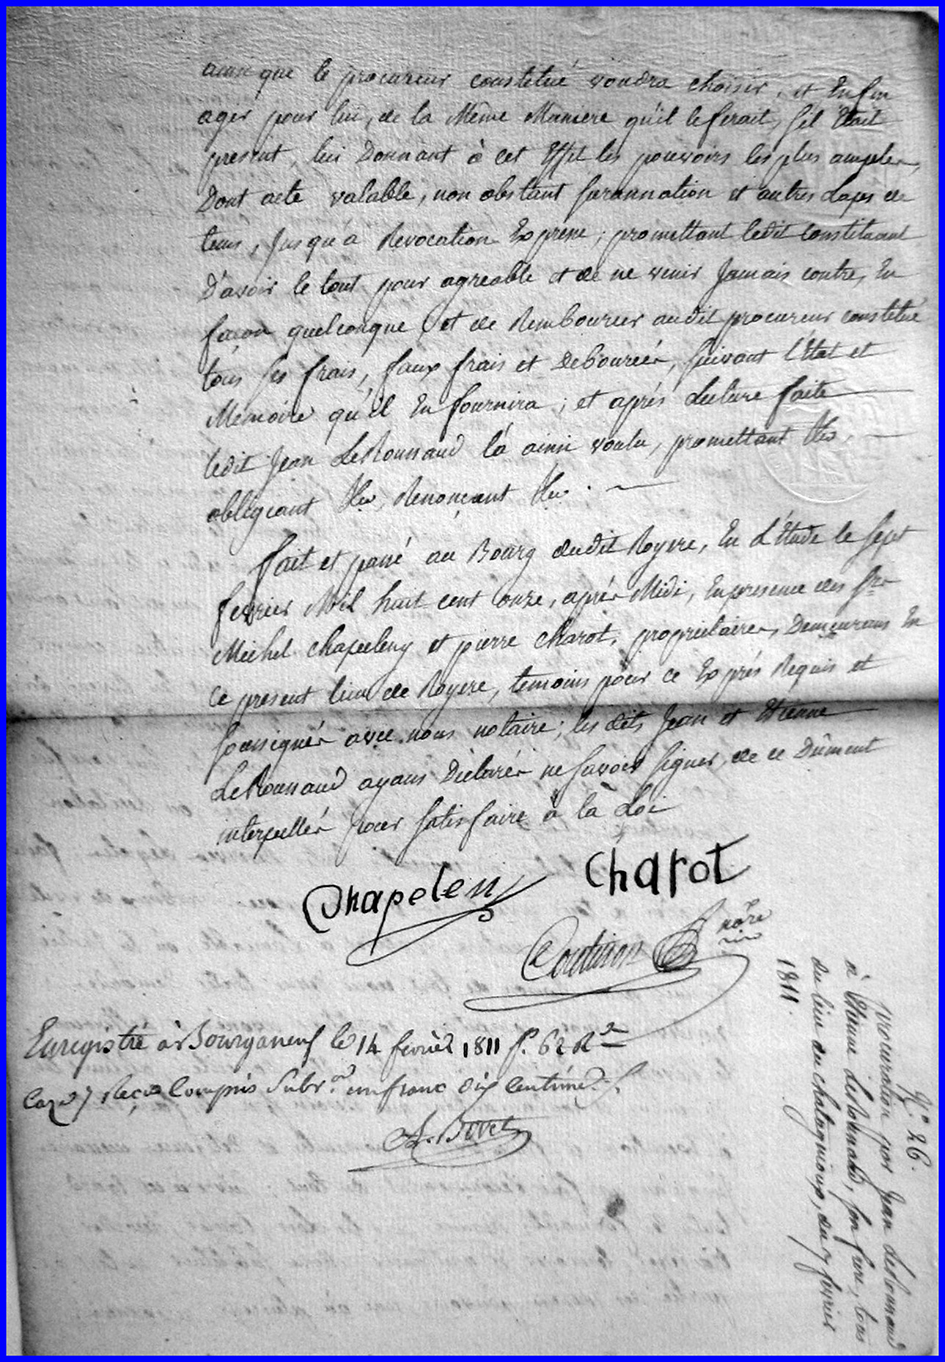 ainsi que le procureur constitué voudra choisir, et Enfin
agir pour lui, de la Même Maniere qu'il le ferait, s'il Etait
present, lui Donnant à cet Effet les pouvoirs les plus amples,
Dont acte valable, non obstant surannation et autres Laps de
tems, Jusqu'a Revocation Expresse; promettant ledit constituant
D'avoir le tout pour agreable et de ne venir Jamais contre, En
façon quelconque, et de Rembourcer audit procureur constitué
tous ses frais, faux frais et debourcés, suivant l'Etat et
Memoire qu'il En fournira; et après Lecture faite
ledit Jean LeRonnaud l'a ainsi voulu, promettant &a,
obligeant &a, Renonçant &a.
fait et passé au Bourg dudit Royere, En L'Etude le sept
fevrier Mil huit cent onze, après Midi, En presence des Srs
Michel Chapeleny et pierre Charot, proprietaires, Demeurans En
ce present lieu de Royere, temoins pour ce Exprès Requis et
soussignés avec nous notaire; les dits Jean et Etienne
LeRonnaud ayans Déclarés ne savoir signer, de ce Dûment
interpellés pour satisfaire à la Loi
Chapeleny Charot
Coutisson nore
Enregistré à Bourganeuf le 14 fevrier 1811 fo. 62 Ro
case 7 reçu Compris Subvon un franc dix centimes
A. Bivet
No 26.
procuration par Jean LeRonnaud
à Etienne LeRonnaud, son frere, tous
du lieu du chatagnoux, du 7 fevrier
1811.